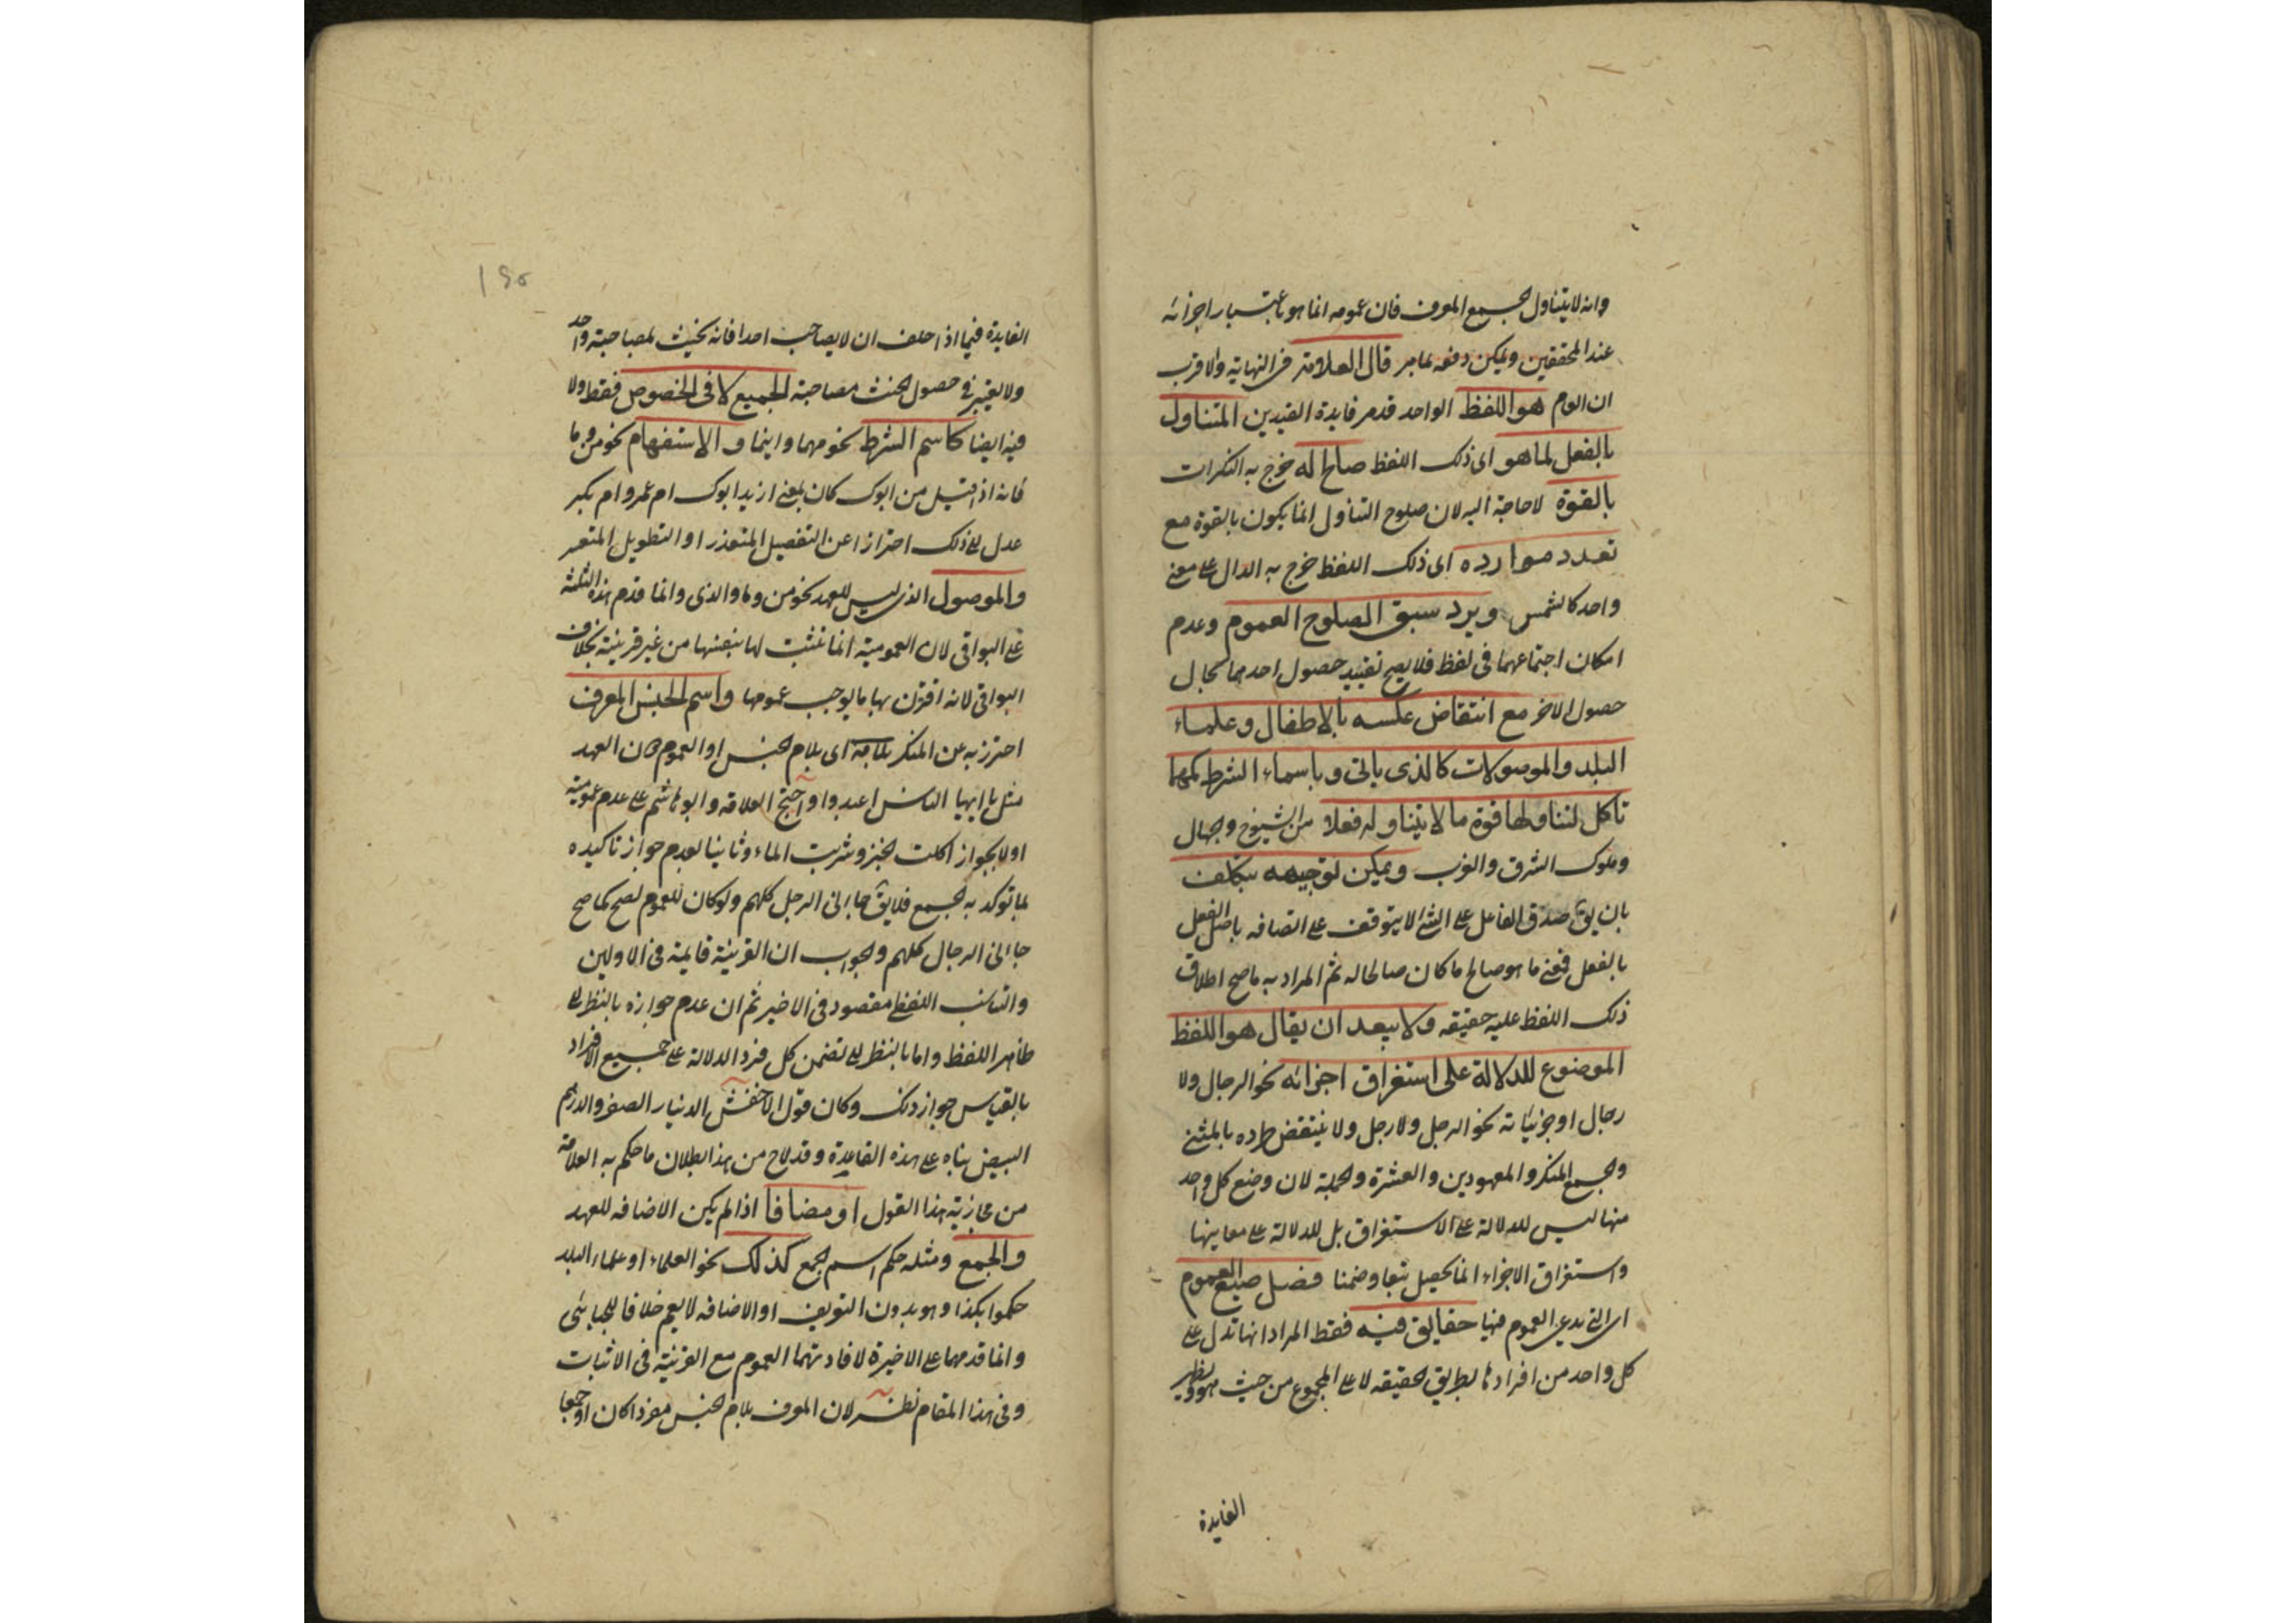 وانه لا يتناول الجمع المعرف فان عمومه انما هو باعتبار اجزائه
عند المحققين ويمكن دفعه بما مر قال العلامة فى النهاية والاقرب
ان العام هو اللفظ الواحد قد مر فايدة القيدين المتناول
بالفعل لما هو اى ذلك اللفظ صالح له خرج به النكرات
بالقوة لا حاجة اليه لان صلوح التناول انما يكون بالقوة مع
تعدد موارده اى ذلك اللفظ خرج به الدال على معنى
واحد كالشمس ويرد سبق الصلوح العموم وعدم
امكان اجتماعهما فى لفظ فلا يصح تقييد حصول احدهما بحال
حصول الاخر مع انتقاض عكسه بالاطفال وعلماء
البلد والموصولات كالذى ياتى وباسماء الشرط كمهما
تاكل لتناولها قوة ما لا يتناوله فعلا من الشيوخ وجهال
وملوك الشرق والغرب ويمكن توجيهه بتكلف
بان يق صدق الفاعل على الشئ لا يتوقف على اتصافه باصل الفعل
بالفعل فمعنى ما هو صالح ما كان صالحا له ثم المراد به ما صح اطلاق
ذلك اللفظ عليه حقيقه ولا يبعد ان يقال هو اللفظ
الموضوع للدلالة على استغراق اجزائه نحو الرجال ولا
رجال او جزئياته نحو الرجل ولا رجل ولا ينتقض طرده بالمثنى
والجمع المنكر والمعهودين والعشرة والجملة لان وضع كل واحد
منها ليس للدلالة على الاستغراق بل للدلالة على معاينها
واستغراق الاجزاء انما يحصل تبعا وضمنا فصل صيغ العموم
اى التى يدعى العموم فيها حقايق فيه فقط المراد انها تدل على
كل واحد من افرادها بطريق الحقيقه لا على المجموع من حيث هو ويظهر
الفايدة
١٩٥
الفايدة فيما اذا حلف ان لا يصاحب احدا فانه يحنث بمصاحبة واحد
ولا يعتبر فى حصول الحنث مصاحبة الجميع لا فى الخصوص فقط ولا
فيه ايضا كاسم الشرط نحو مهما واينما و الاستفهام نحو من وما
فانه اذا قيل من ابوك كان بمعنى ازيد ابوك ام عمرو ام بكر
عدل الى ذلك احترازا عن التفصيل المتعذر او التطويل المتعسر
والموصول الذى ليس للعهد نحو من وما والذى وانما قدم هذه الثلثة
على البواقى لان العمومية انما تثبت لها بنفسها من غير قرينة بخلاف
البواقى لانه اقترن بها ما يوجب عمومها واسم الجنس المعرف
احترز به عن المنكر بلامه اى بلام الجنس او العموم دون العهد
مثل يا ايها الناس اعبدوا واحتج العلامه وابو هاشم على عدم عموميته
اولا بجواز اكلت الخبز وشربت الماء وثانيا بعدم جواز تاكيده
بما توكد به الجمع فلا يق جاءنى الرجل كلهم ولو كان للعموم لصح كما صح
جاءنى الرجال كلهم والجواب ان القرينة قايمة فى الاولين
والتناسب اللفظى مقصود فى الاخير ثم ان عدم جوازه بالنظر الى
ظاهر اللفظ واما بالنظر الى تضمن كل فرد الدلالة على جميع الافراد
بالقياس جواز ذلك وكان قول الاخفش الدنيار الصفر والدرهم
البيض بناه على هذه القاعدة وقد لاح من هذا بطلان ما حكم به العلامة
من مجازية هذا القول او مضافا اذا لم يكن الاضافه للعهد
والجمع ومثله حكم اسم الجمع كذلك نحو العلماء او علماء البلد
حكموا بكذا وهو بدون التعريف او الاضافه لا يعم خلافا للجبائى
وانما قدمهما على الاخيرة لافادتهما العموم مع القرينة فى الاثبات
وفى هذا المقام نظر لان المعرف بلام الجنس مفردا كان او جمعا